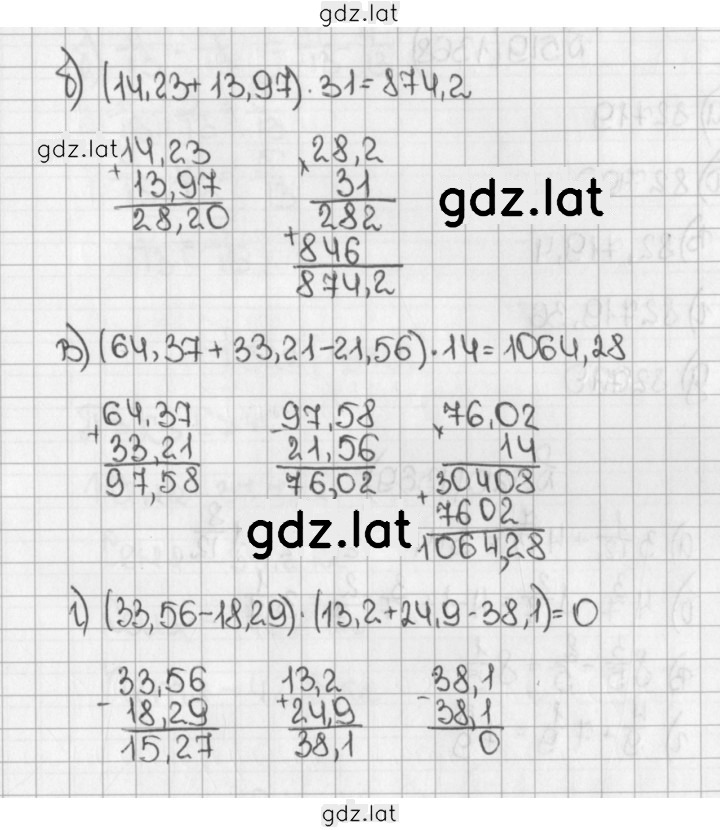 gdz.lat
б) (14,23+13,97)·31=874,2
gdz.lat
+ 14,23
13,97
28,20
× 28,2
31
282
+ 846
874,2
gdz.lat
в) (64,37+33,21-21,56)·14=1064,28
+ 64,37
33,21
97,58
- 97,58
21,56
76,02
× 76,02
14
30408
+ 7602
1064,28
gdz.lat
г) (33,56-18,29)·(13,2+24,9-38,1)=0
- 33,56
18,29
15,27
+ 13,2
24,9
38,1
- 38,1
38,1
0
gdz.lat